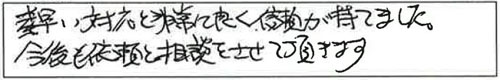 素早い対応と非常に良く信頼が持てました。
今後も依頼と相談をさせて頂きます